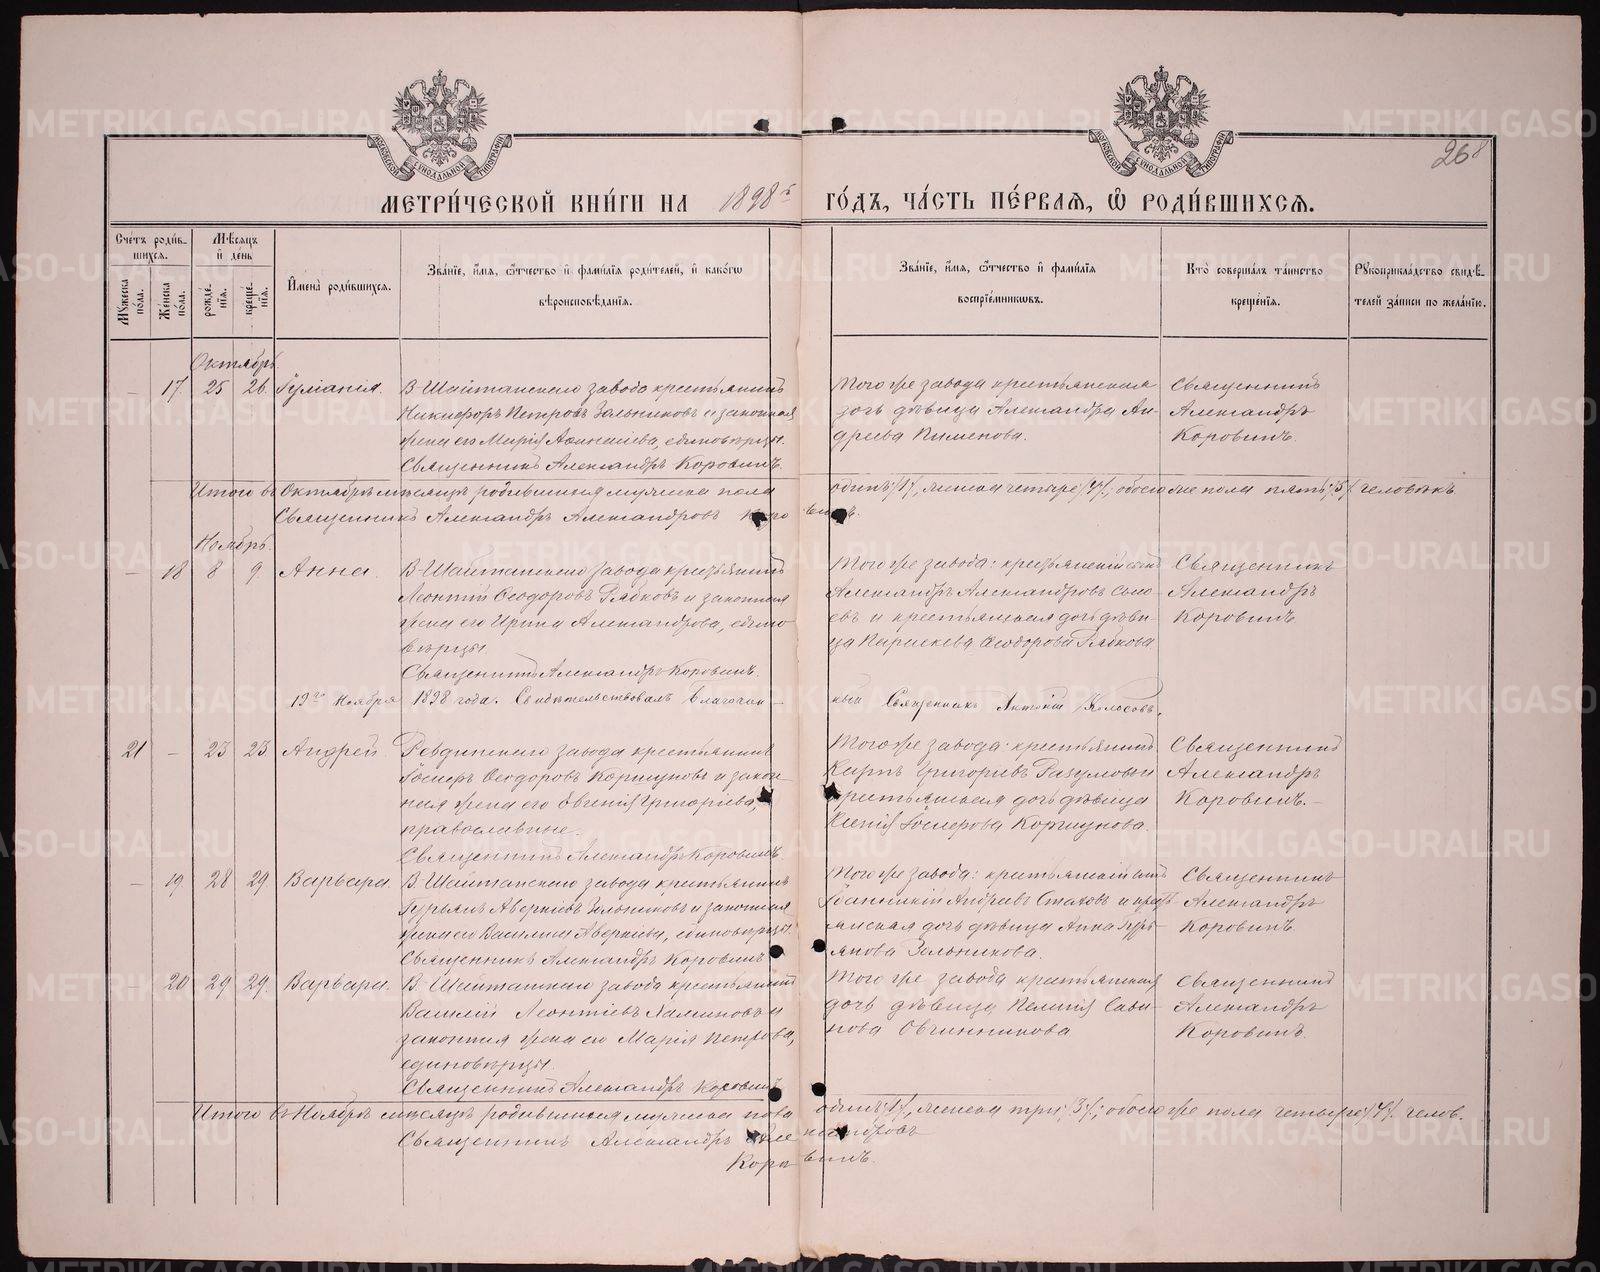 МЕТРИ́ЧЕСКОЙ КНИ́ГИ НА 1898 й ГО́ДЪ, ЧА́СТЬ ПЕ́РВАѦ, Ѡ РОДИ́ВШИХСѦ.
268
Сче́тъ роди́в-шихсѧ.
Мꙋ́жеска по́ла.
Же́нска по́ла.
Мѣ́сѧцъ и҆ де́нь
рожде́-нїѧ.
креще́-нїѧ.
И҆мена̀ роди́вшихсѧ.
Зва́нїе, и҆́мѧ, ѻ҆́тчество и҆ фами́лїѧ роди́телей, и҆ како́гѡ
вѣроисповѣ́данїѧ.
Зва́нїе, и҆́мѧ, ѻ҆́тчество и҆ фами́лїѧ
воспрїе́мникѡвъ.
Кто̀ соверша́лъ та́инство
креще́нїѧ.
Рꙋкоприкла́дство свидѣ́-
телей за́писи по жела́нїю.
Октябрь
– 17. 25 26. Іуліанія.
В. Шайтанскаго завода крестьянинъ
Никифоръ Петровъ Зольниковъ и законная
жена его Марія Аѳанасіева, единовѣрцы.
Священникъ Александръ Коровинъ.
Того же завода крестьянская
дочь дѣвица Александра Ан-
дреева Пименова.
Священникъ
Александръ
Коровинъ.
Итого въ Октябрѣ мѣсяцѣ родившихся мужска пола одинъ /1/, женска четыре /4/, обоего же пола пять /5/ человѣкъ.
Священникъ Александръ Александровъ Коровинъ.
Ноябрь.
– 18 8 9 Анна.
В. Шайтанскаго завода крестьянинъ
Леонтій Ѳеодоровъ Рябковъ и законная
жена его Ирина Александрова, едино-
вѣрцы.
Священникъ Александръ Коровинъ.
Того же завода: крестьянскій сынъ
Александръ Александровъ
евъ и крестьянская дочь дѣви-
ца Параскева Ѳеодорова Рябкова
Священникъ
Александръ
Коровинъ
19го Ноября 1898 года. Свидѣтельствовалъ Благочин-ный Священникъ Антоній Колосовъ.
21 – 23 23 Андрей.
Ревдинскаго завода крестьянинъ
Іосифъ Ѳеодоровъ Коршуновъ и закон-
ная жена его Евгенія Григоріева,
православные.
Священникъ Александръ Коровинъ.
Того же завода: крестьянинъ
Карпъ Григоріевъ
крестьянская дочь дѣвица
Ксенія Іосифова Коршунова.
Священникъ
Александръ
Коровинъ.–
– 19 28 29. Варвара.
В. Шайтанскаго завода крестьянинъ
Гурьянъ Аверкіевъ Зольниковъ и законная
жена его Василиса Аверкіева, единовѣрцы.
Священникъ Александръ Коровинъ
Того же завода: крестьянскій сынъ
Іоанникій Андреевъ Стаховъ и крест-
янская дочь дѣвица Анна Гурь-
янова Зольникова.
Священникъ
Александръ
Коровинъ.
– 20 29 29. Варвара.
В. Шайтанскаго завода крестьянинъ
Василій Леонтіевъ и
законная жена его Марія Петрова,
единовѣрцы.
Священникъ Александръ Коровинъ
Того же завода крестьянская
дочь дѣвица Пелагія Сави-
нова Овчинникова
Священникъ
Александръ
Коровинъ.
Итого въ Ноябрѣ мѣсяцѣ родившихся мужска пола одинъ /1/, женска три /3/; обоего же пола четыре /4/ челов.
Священникъ Александръ Александровъ
Коровинъ.
METRIKI.GASO-URAL.RU